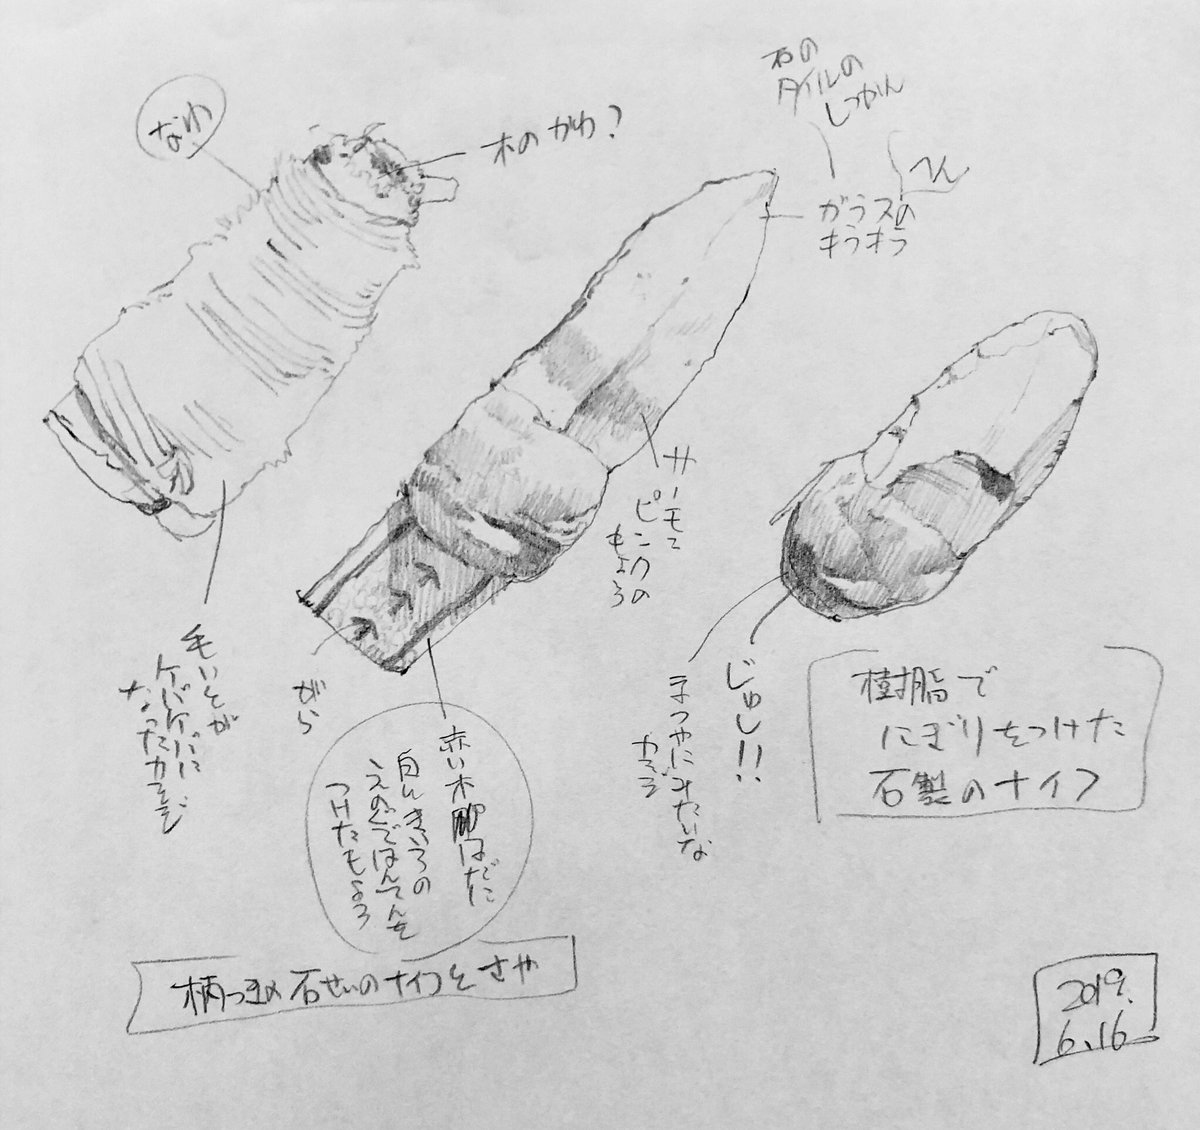 なわ
木のかわ？
石の
タイルの
しつかん
へん
ガラスの
キラキラ
サーモて
ピンクの
もよう
毛いとが
ケバケバに
なったカンジ
がら
赤い木はだに
白いきいろの
えのぐではんてんを
つけたもよう
じゅし!!
まつやにみたいな
カンジ
樹脂で
にぎりをつけた
石製のナイフ
柄つきの石せいのナイフとさや
2019.
6.16